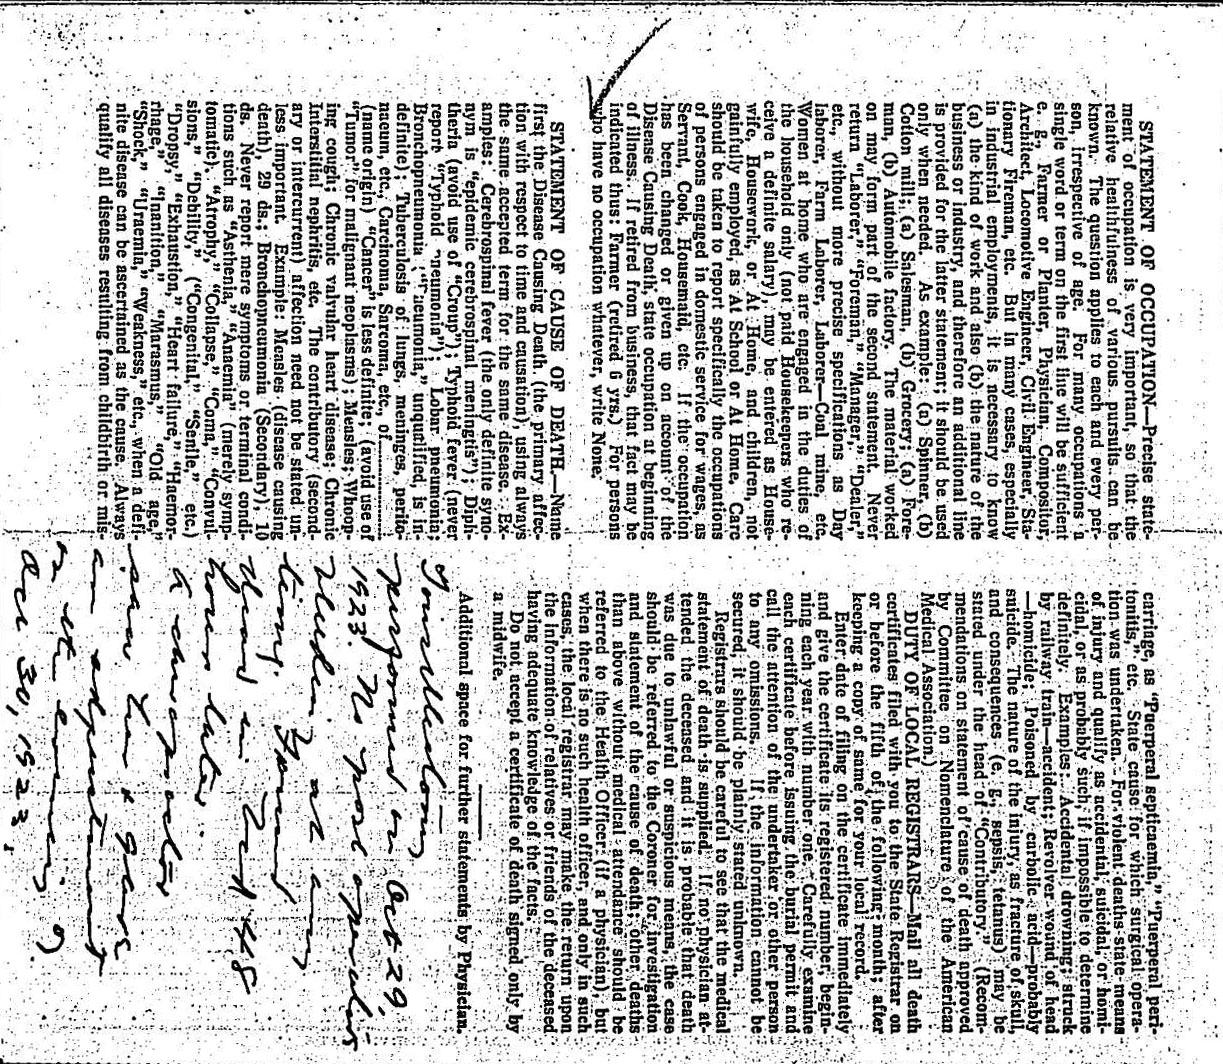 STATEMENT OF OCCUPATION—Precise state-
ment of occupation is very important, so that the
relative healthfulness of various pursuits can be
known. The question applies to each and every per-
son, irrespective of age. For many occupations a
single word or term on the first line will be sufficient
e. g., Farmer or Planter, Physician, Compositor,
Architect, Locomotive Engineer, Civil Engineer, Sta-
tionary Fireman, etc. But in many cases, especially
in industrial employments, it is necessary to know
(a) the kind of work and also (b) the nature of the
business or industry, and therefore an additional line
is provided for the latter statement; it should be used
only when needed. As example: (a) Spinner, (b)
Cotton mill; (a) Salesman, (b) Grocery; (a) Fore-
man, (b) Automobile factory. The material worked
on may form part of the second statement. Never
return "Laborer," "Foreman," "Manager," "Dealer,"
etc., without more precise specifications as Day
laborer, Farm Laborer, Laborer—Coal mine, etc.
Women at home who are engaged in the duties of
the household only (not paid Housekeepers who re-
ceive a definite salary), may be entered as House-
wife, Housework, or At Home, and children, not
gainfully employed, as At School or At Home, Care
should be taken to report specifically the occupations
of persons engaged in domestic service for wages, as
Servant, Cook, Housemaid, etc. If the occupation
has been changed or given up on account of the
Disease Causing Death, state occupation at beginning
of illness. If retired from business, that fact may be
indicated thus: Farmer (retired 6 yrs.) For persons
who have no occupation whatever, write None.
STATEMENT OF CAUSE OF DEATH—Name
first the Disease Causing Death (the primary affec-
tion with respect to time and causation), using always
the same accepted term for the same disease. Ex-
amples: Cerebrospinal fever (the only definite syno-
nym is "epidemic cerebrospinal meningitis"); Diph-
theria (avoid use of "Croup"); Typhoid fever (never
report "Typhoid pneumonia"); Lobar pneumonia;
Bronchopneumonia ("Pneumonia," unqualified, is in-
definite); Tuberculosis of lungs, meninges, perito-
naeum, etc., Carcinoma, Sarcoma, etc., of
(name origin) "Cancer" is less definite; (avoid use of
"Tumor" for malignant neoplasms); Measles; Whoop-
ing cough; Chronic valvular heart disease; Chronic
Interstitial nephritis, etc. The contributory (second-
ary or intercurrent) affection need not be stated un-
less important. Example: Measles (disease causing
death), 29 ds.; Bronchopneumonia (Secondary), 10
ds. Never report mere symptoms or terminal condi-
tions such as "Asthenia," "Anaemia" (merely symp-
tomatic). "Atrophy," "Collapse," "Coma," "Convul-
sions," "Debility," ("Congenital," "Senile," etc.)
"Dropsy," "Exhaustion," "Heart failure," "Haemor-
rhage," "Inanition," "Marasmus," "Old age,"
"Shock," "Uraemia," "Weakness," etc., when a defi-
nite disease can be ascertained as the cause. Always
qualify all diseases resulting from childbirth or mis-
carriage, as "Puerperal septicaemia," "Puerperal peri-
tonitis," etc. State cause for which surgical opera-
tion was undertaken. For violent deaths state means
of injury and qualify as accidental, suicidal, or homi-
cidal, or as probably such, if impossible to determine
definitely. Examples: Accidental drowning; struck
by railway train—accident; Revolver wound of head
—homicide; Poisoned by carbolic acid—probably
suicide. The nature of the injury, as fracture of skull,
and consequences (e. g., sepsis, tetanus) may be
stated under the head of "Contributory." (Recom-
mendations on statement of cause of death approved
by Committee on Nomenclature of the American
Medical Association.)
DUTY OF LOCAL REGISTRARS—Mail all death
certificates filed with you to the State Registrar on
or before the fifth of the following month; after
keeping a copy of same for your local record.
Enter date of filing on the certificate immediately
and give the certificate its registered number, begin-
ning each year with number one. Carefully examine
each certificate before issuing the burial permit and
call the attention of the undertaker or other person
to any omissions. If the information cannot be
secured, it should be plainly stated unknown.
Registrars should be careful to see that the medical
statement of death is supplied. If no physician at-
tended the deceased and it is probable that death
was due to unlawful or suspicious means, the case
should be referred to the Coroner for investigation
and statement of the cause of death; other deaths
than above without medical attendance should be
referred to the Health Officer (if a physician), but
when there is no such health officer, and only in such
cases, the local registrar may make the return upon
the information of relatives or friends of the deceased
having adequate knowledge of the facts.
Do not accept a certificate of death signed only by
a midwife.
Additional space for further statements by Physician.
Tonsillectomy
performed on Oct 29,
1923. No post operative
bleeding at any
time. Found
dead in bed 48
hours later.
A chiropractor
saw her & gave
an adjustment
in the evening of
Oct 30, 1923.